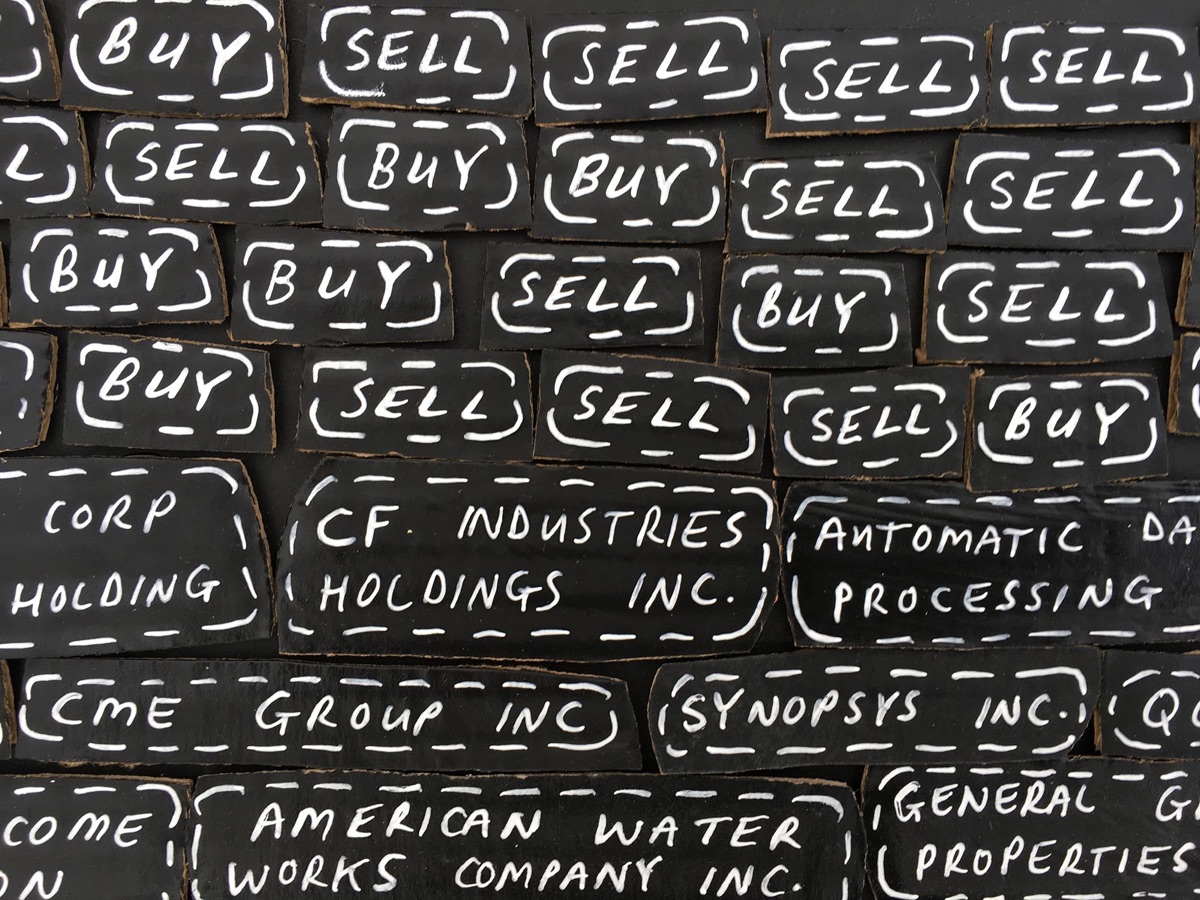 BUY SELL SELL SELL SELL
L SELL BUY BUY SELL SELL
BUY BUY SELL BUY SELL
BUY SELL SELL SELL BUY
CORP
HOLDING
CF INDUSTRIES
HOLDINGS INC.
AUTOMATIC DA
PROCESSING
CME GROUP INC
SYNOPSYS INC.
Q
COME
ON
AMERICAN WATER
WORKS COMPANY INC.
GENERAL G
PROPERTIES